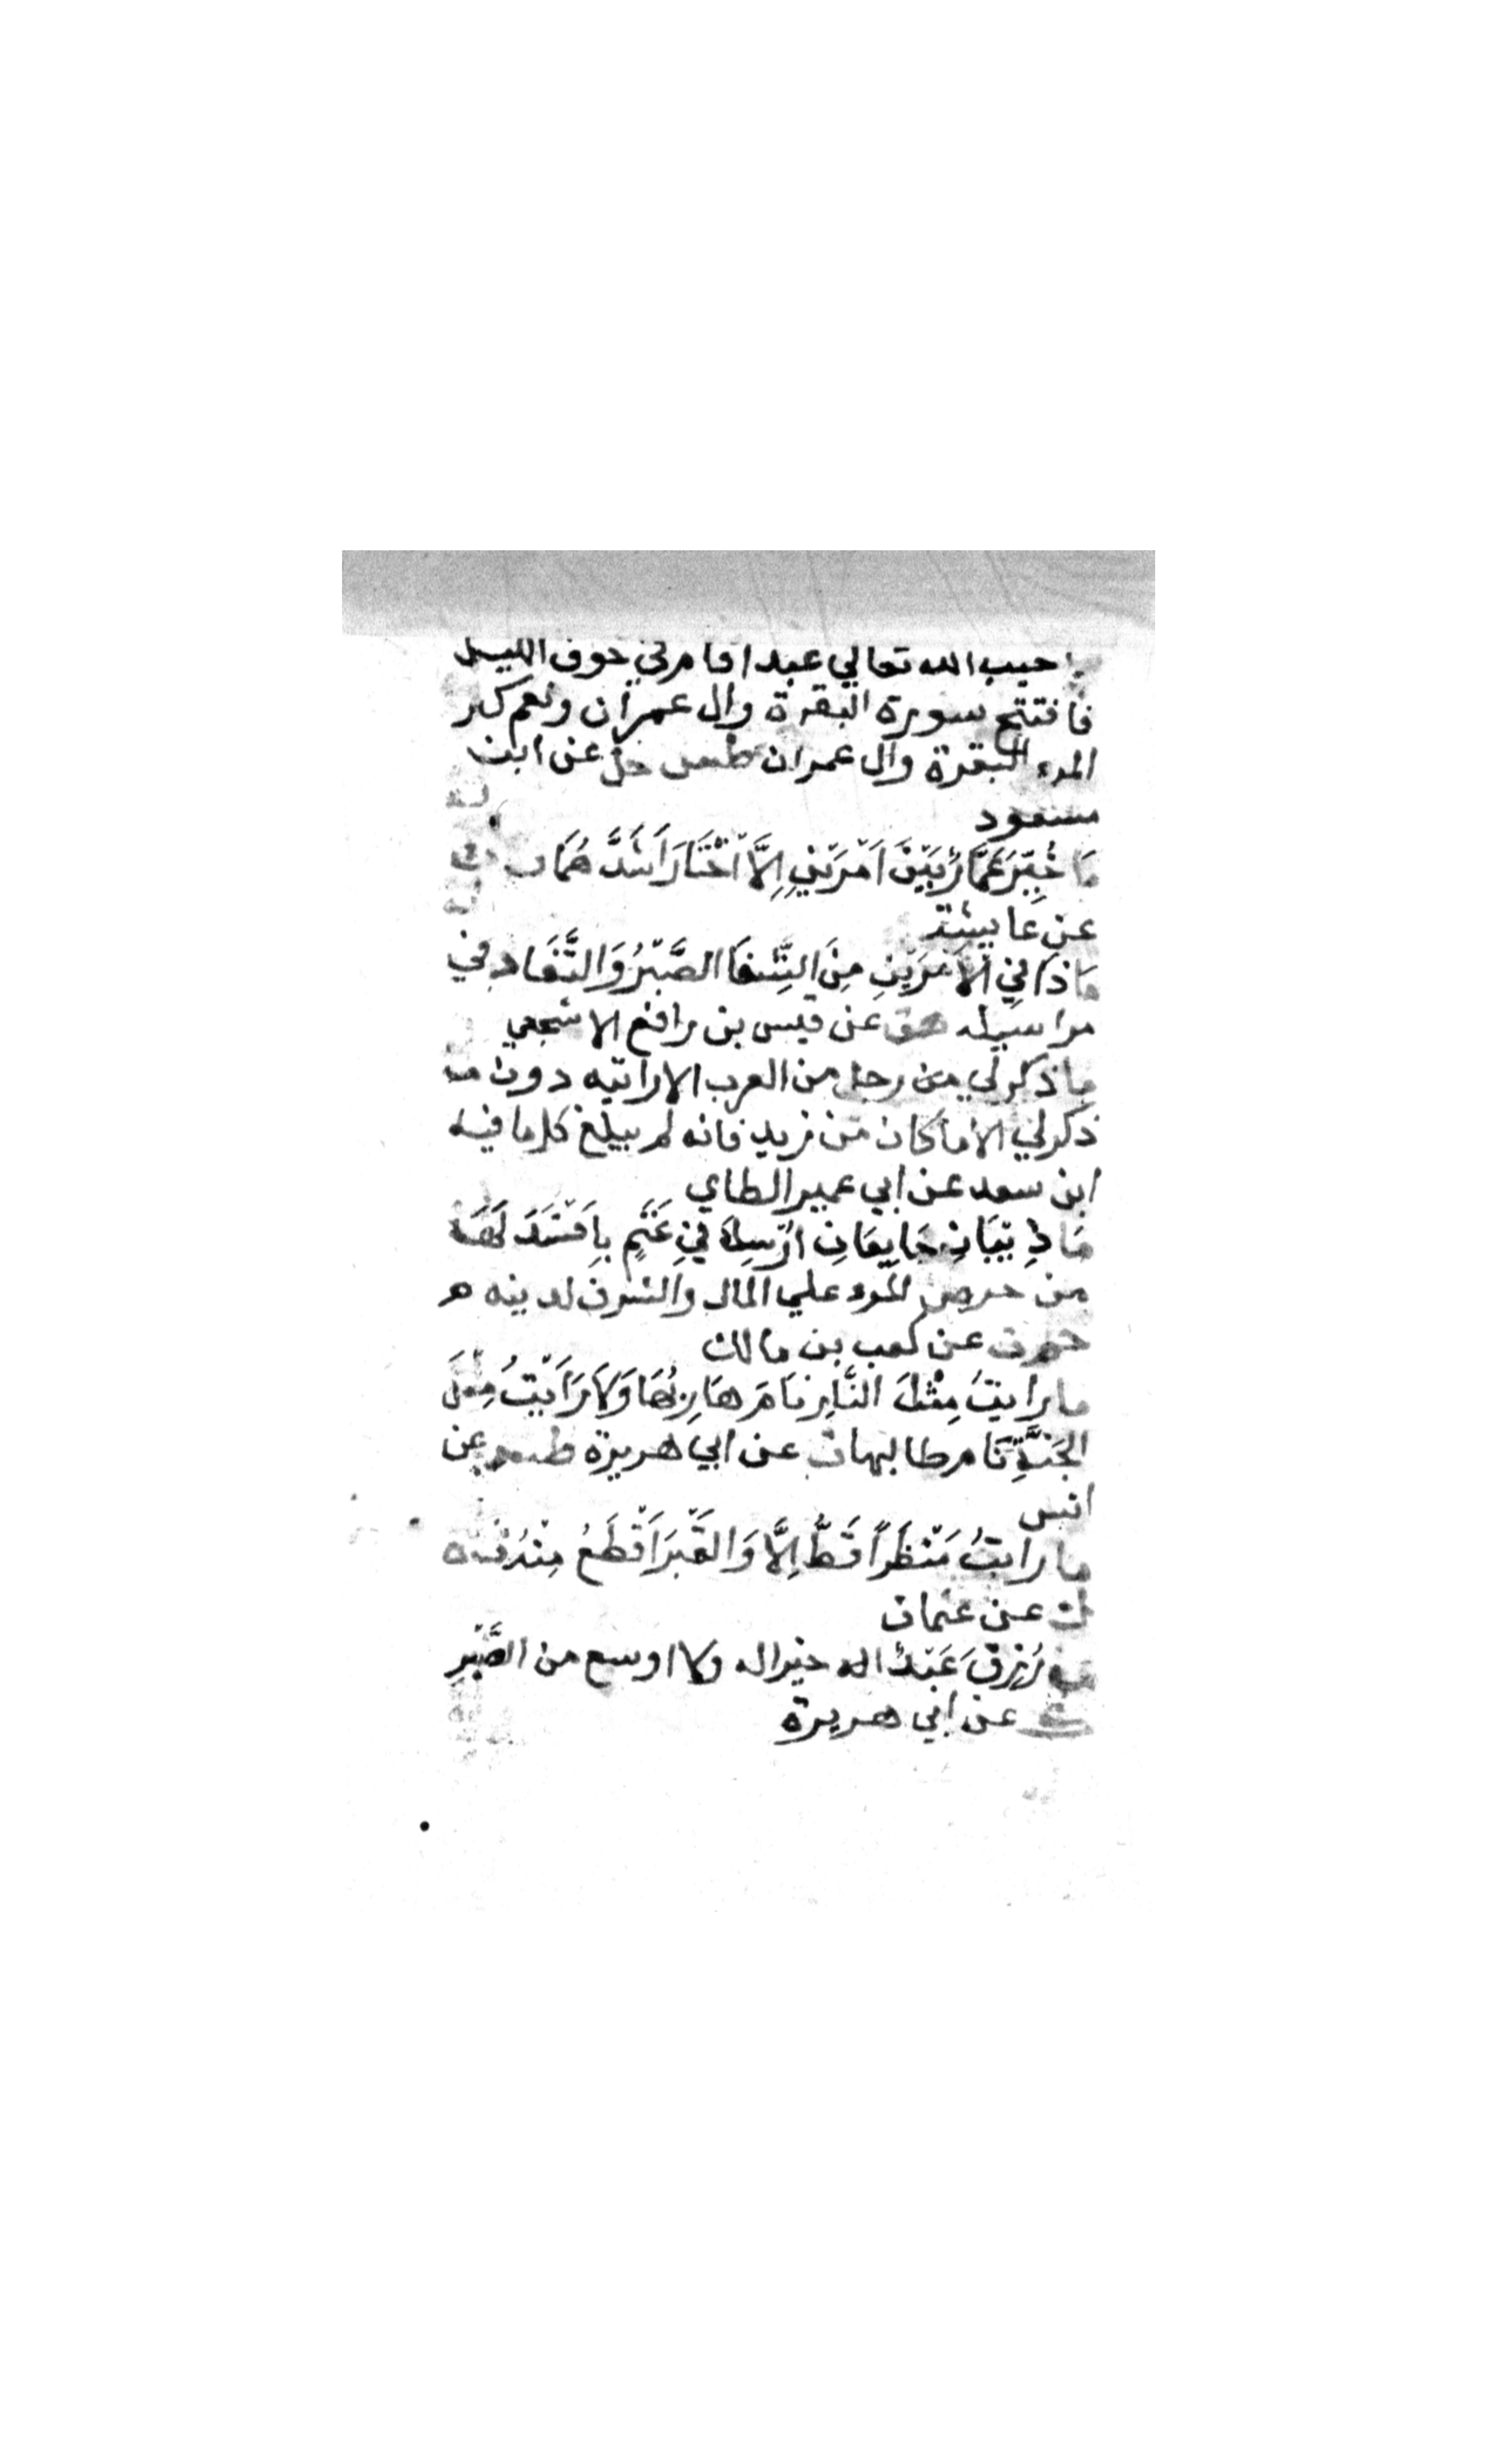 خيب الله تعالي عبدا قام في جوف الليل
فافتتح سورة البقرة وال عمران ونعم كنز
المرء البقرة وال عمران طس حل عن ابن
مسعود
مَا خُيِّرَ عَمَّارُ بَيْنَ اَمْرَيْنِ اِلَّا اخْتَارَ اَشَدَّ هُمَا ت ك
عن عايشة
مَاذَا فِي الاَمَرَّيْنِ مِنَ الشِّفَا الصَّبْرُ وَالثَّفَاد في
مراسيله هق عن قيس بن رافع الاشجعي
ما ذكر لي من رجل من العرب الا رايته دون ما
ذكر لي الا ما كان من زيد فانه لم يبلغ كل ما فيه
ابن سعد عن ابي عمير الطاي
مَا ذِيبَانِ جَايِعَانِ اُرْسِلَا فِي غَنَمٍ بِاَفْسَدَ لَهَا
من حرص المرء علي المال والشرف لدينه
حم ت عن كعب بن مالك
ما رايتُ مِثْلَ النَّارِ نَامَ هَارِبُهَا وَلَا رَاَيْتُ مِثْلَ
الجَنَّةِ نَام طالبها ت عن ابي هريرة طس عن
انس
ما رايتُ مَنْظَراً قَطُّ اِلَّا وَالقَبْرُ اَفْظَعُ مِنْهُ ت ه
ك عن عثمان
ما رُزِقَ عَبْدٌ خيرا له ولا اوسع من الصَّبْرِ
ك عن ابي هريرة